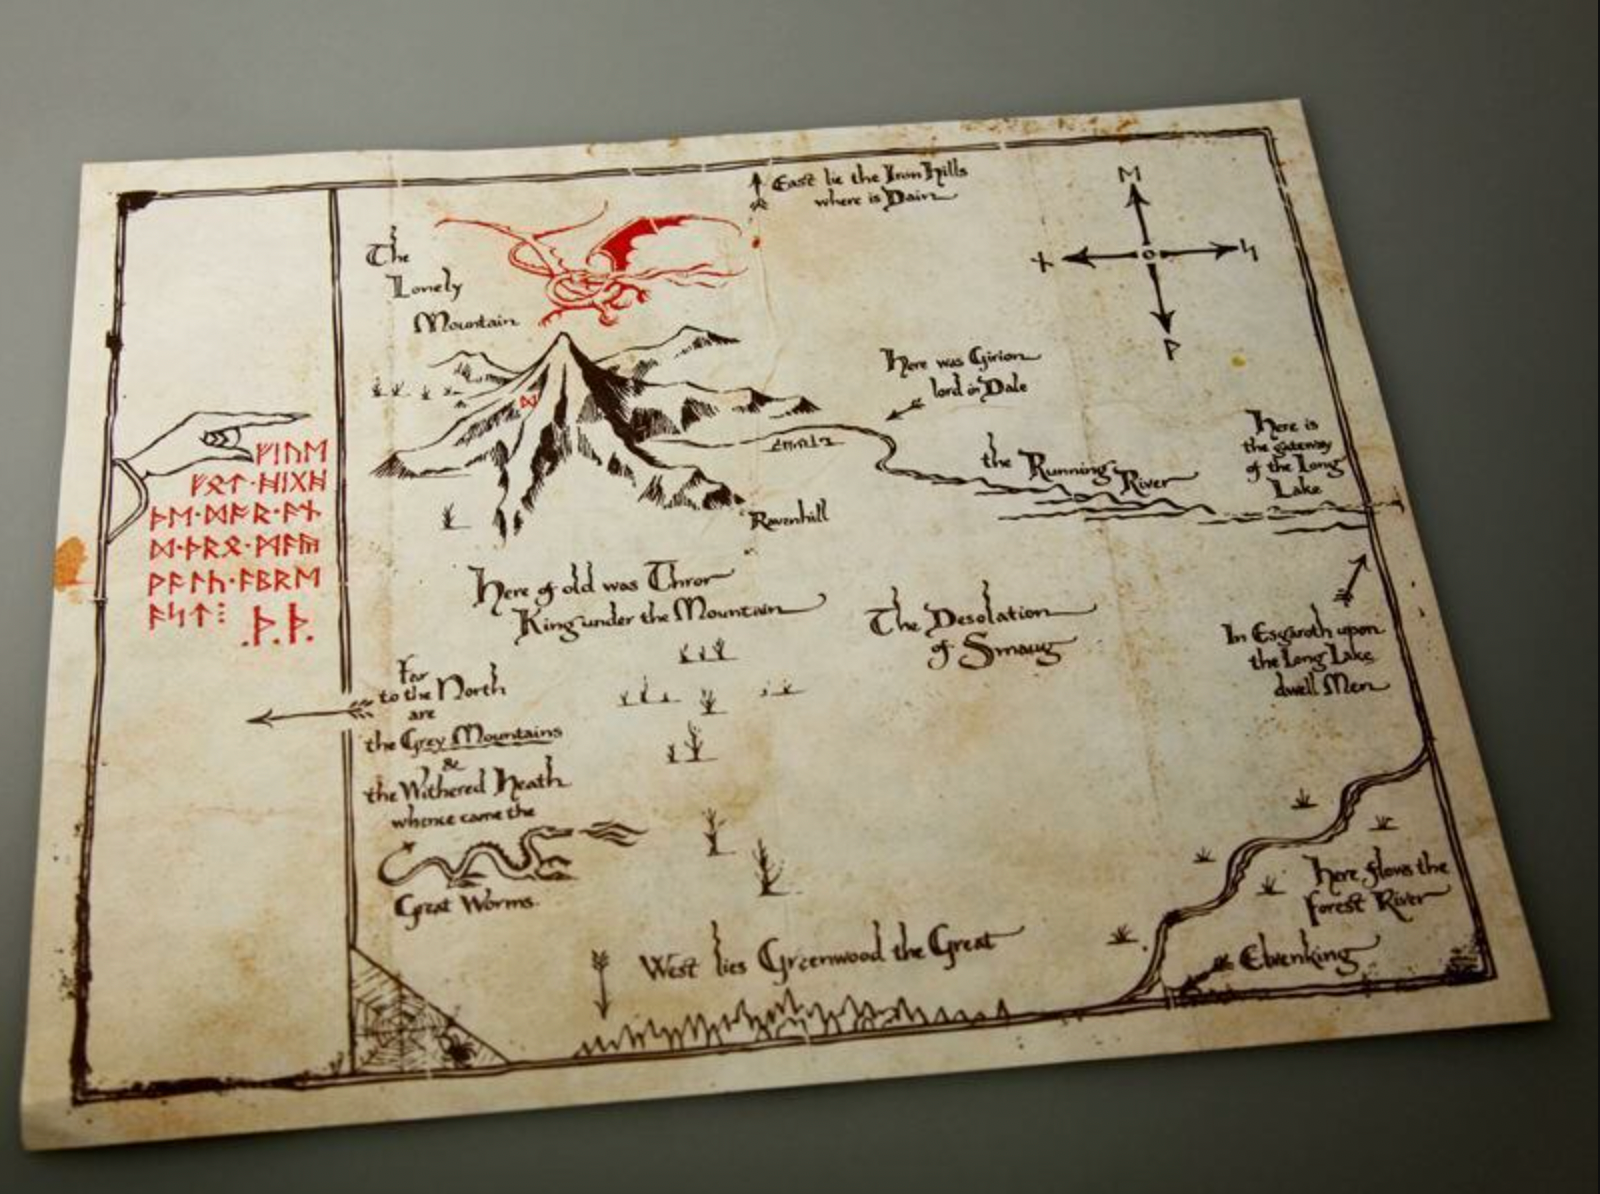 East lie the Iron Hills
where is Dain
ᛖ
ᚾ
ᛋ
ᚹ
The
Lonely
Mountain
ᛞ
Here was Girion
lord in Dale
Here is
the gateway
of the Long
Lake
the Running
River
Ravenhill
ᚠᛁᚢᛖ
ᚠᛟᛏ·ᚻᛁᚷᚻ
ᚦᛖ·ᛞᚩᚱ·ᚫᚾ
ᛞ·ᚦᚱᛟ·ᛗᚫᚣ
ᚹᚫᛚᚳ·ᚫᛒᚱᛖ
ᚫᛋᛏ⁝ .ᚦ.ᚦ.
Here of old was Thror
King under the Mountain
The Desolation
of Smaug
In Esgaroth upon
the Long Lake
dwell Men
Far
to the North
are
the Grey Mountains
&
the Withered Heath
whence came the
Great Worms.
Here flows the
forest River
Elvenking
West lies Greenwood the Great